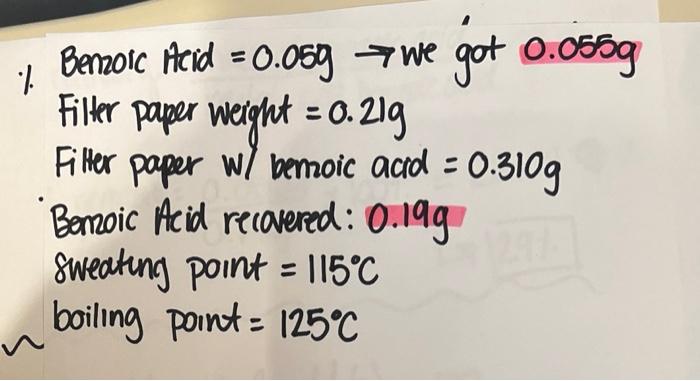 % Benzoic Acid = 0.05g → we got 0.055g
Filter paper weight = 0.21g
Filter paper w/ benzoic acid = 0.310g
Benzoic Acid recovered: 0.19g
Sweating point = 115°C
boiling point = 125°C